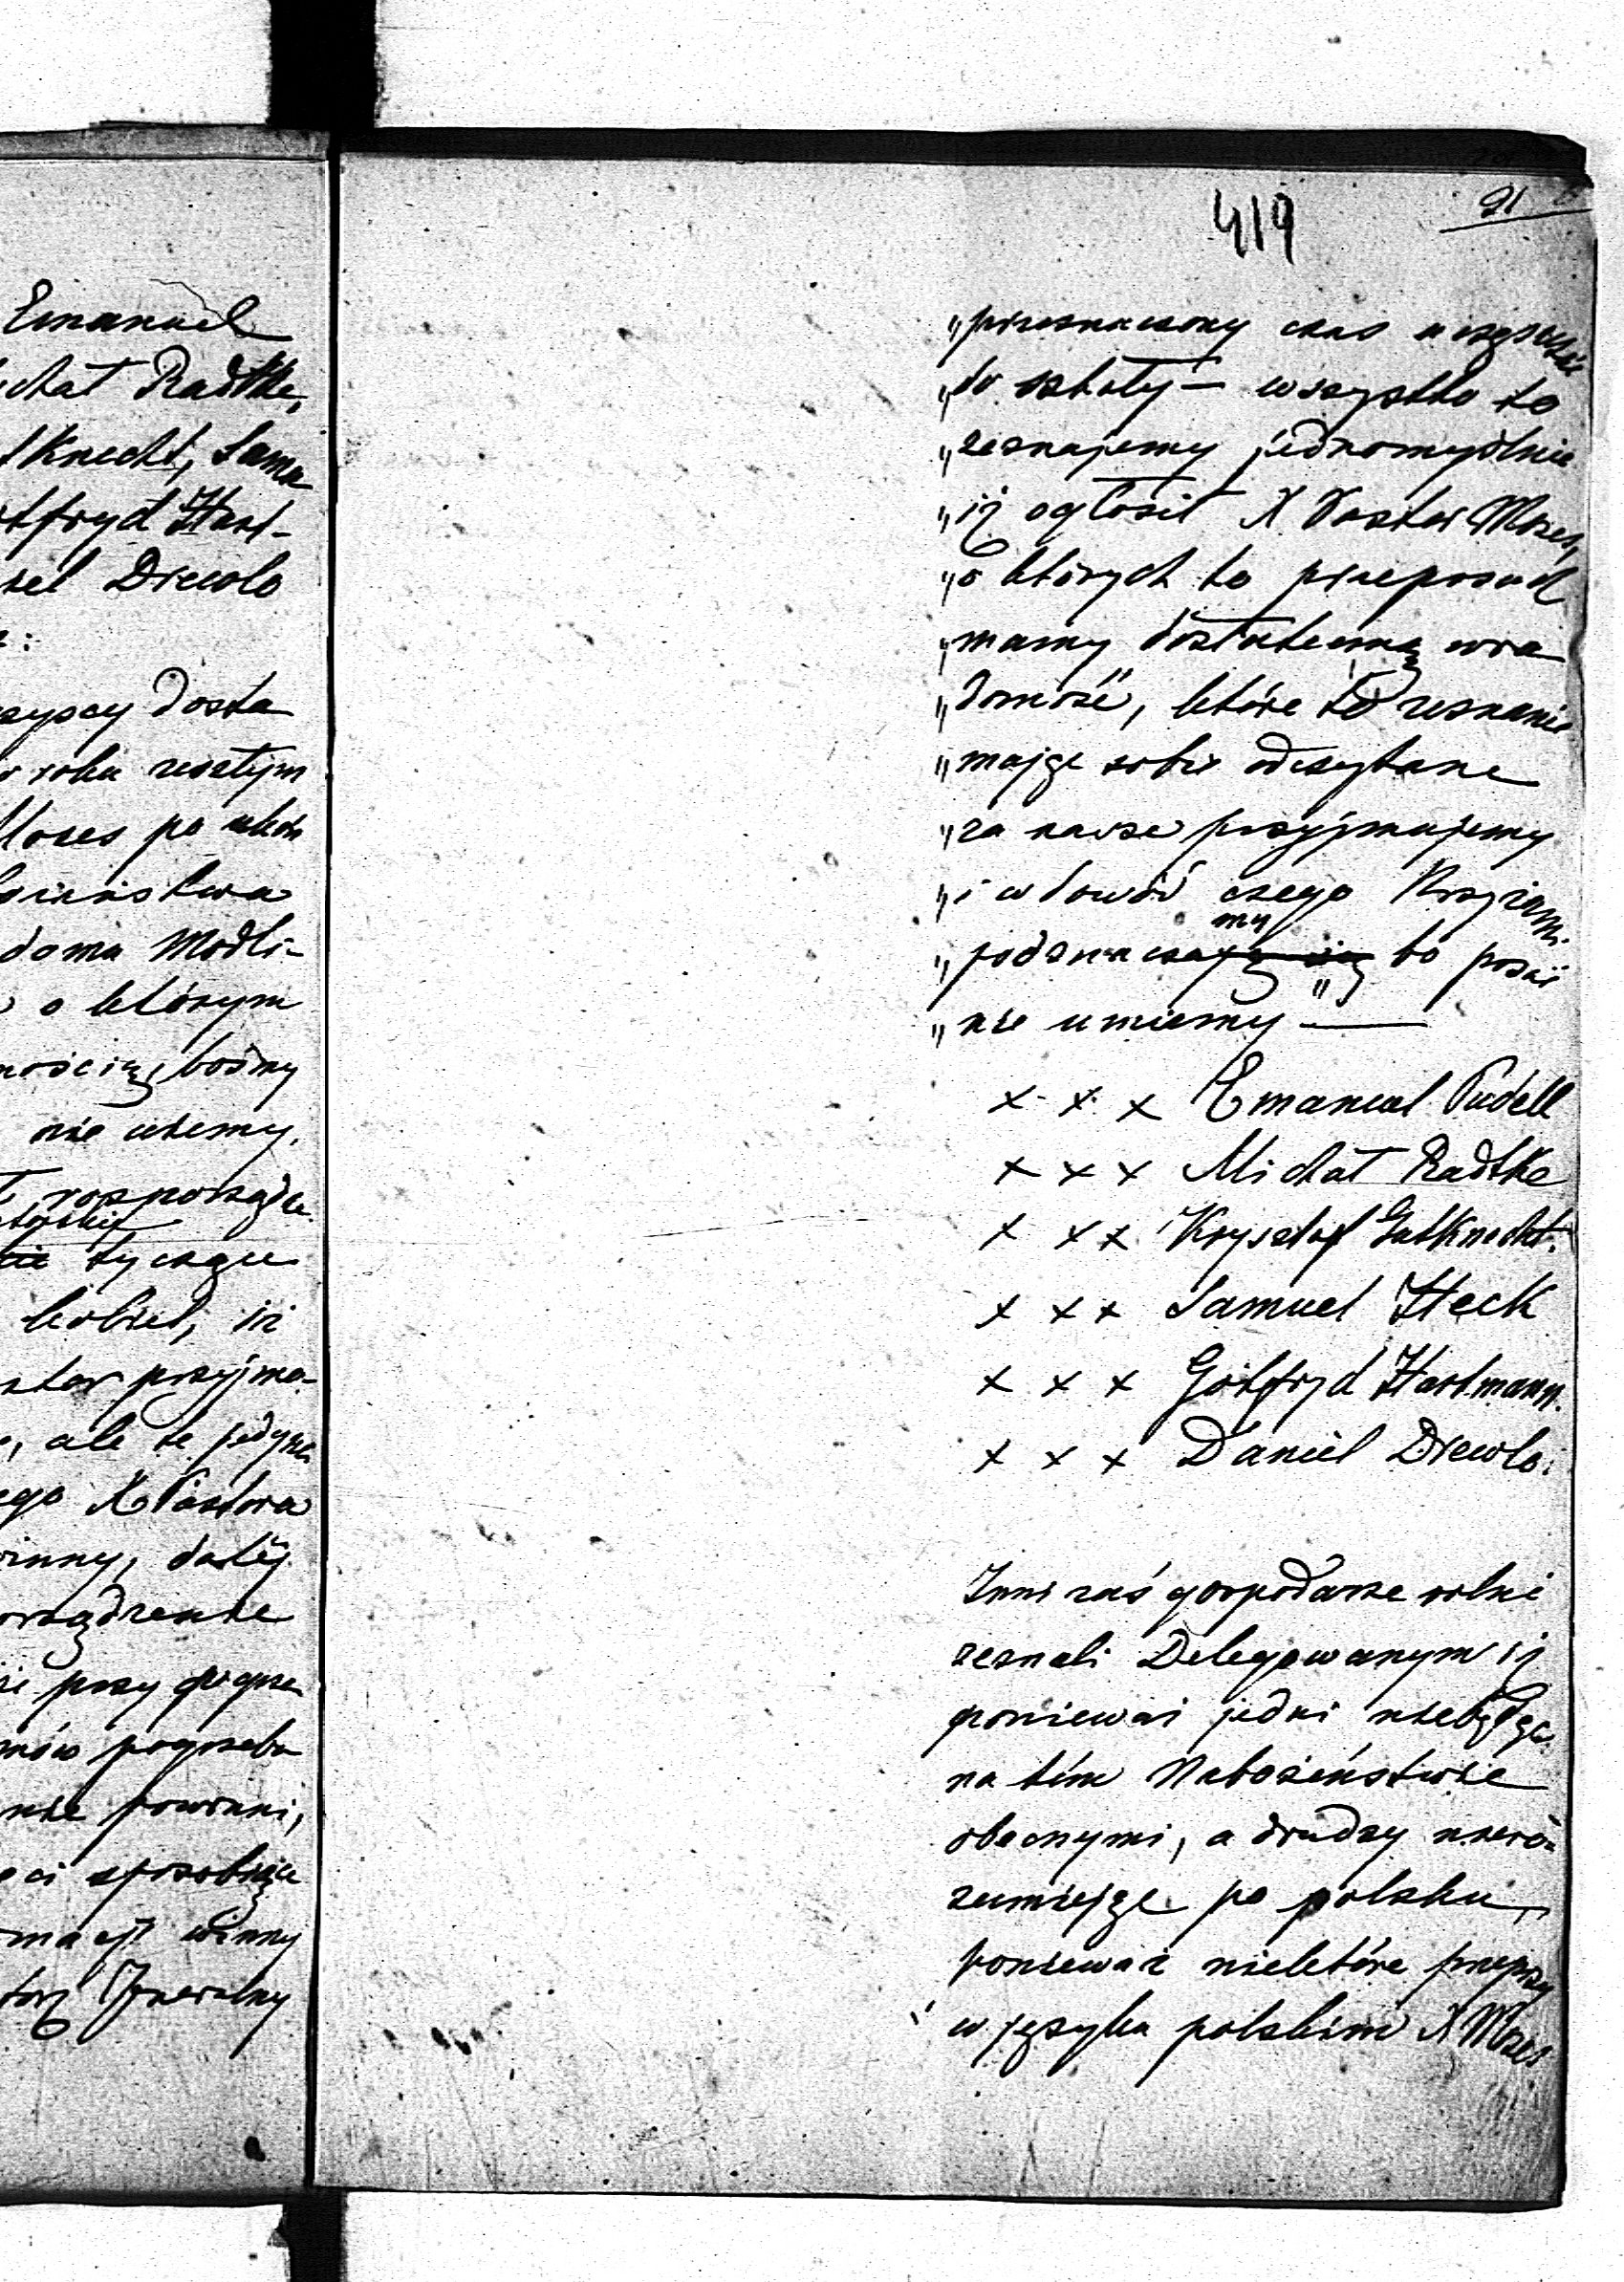 Emanuel
chał Radtke,
tKnecht, Samu
tfryd Hart-
iel Drewlo
:
zyscy dosta
roku zeszłym
Moses po
bożeństwa
domu Modli-
o którym
nością, bośmy
nie
rosporządze
tycząca
kobiet, iż
stor przyjmo-
, ale te jedynie
ego X Pastora
winny, daléj
orządzenie
przy
mów pogrzebu
nie powinni,
ci sposobiące
macyi winny
torz Jeneralny
419
21
„przeznaczony czas uczęszczać
„do szkoły — wszystko to
„zeznajemy jednomyślnie
„iż ogłosił X Pastor Moses,
„o których to przeposud
„mamy dostateczną wia
„domość, które to zeznanie
„mając sobie odczytane
„za nasze przyjmujemy
„i w dowód czego Krzyżami
my
„podznacza ją się bo pisać
„nie umiemy —
x x x Emanuel Pudell
x x x Michał Radtke
x x x Krysztof GutKnecht.
x x x Samuel Heck
x x x Gotfryd Hartmann.
x x x Daniel Drewlo.
Inni zaś gospodarze rolni
zeznali Delegowanym iż
ponieważ jedni niebędąc
na tém Nabożeństwie
obecnymi, a drudzy niero-
zumiejąc po polsku,
ponieważ niektóre przepisy
w języku polskim X Moses